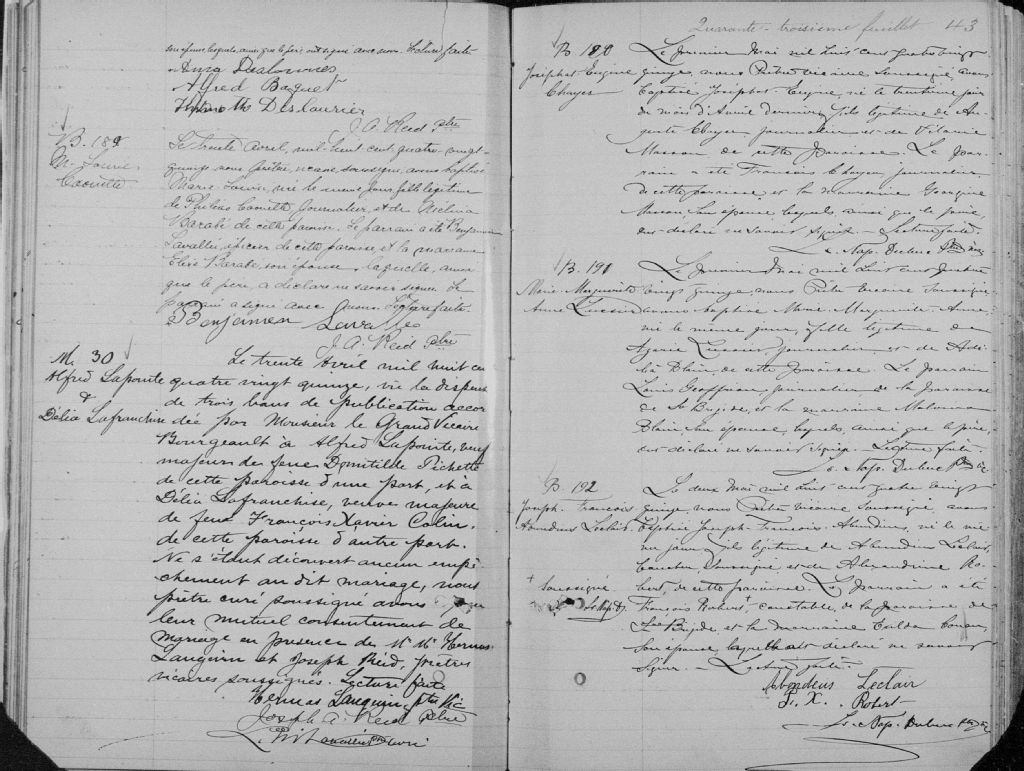 son épouse, lesquels, ainsi que le père, ont signé avec nous. Lecture faite.
Alfred Paquet
Deslaurier
J. A. Reid ptre
B. 189
M. Louise
Caouette
Le trente avril, mil-huit cent quatre-vingt-
quinze nous prêtre, vicaire, soussigné, avons baptisé
Marie Louise, née le même jour, fille légitime
de Philéas Caouette, journalier, et de Mélina
Barabé de cette paroisse. Le parrain a été Benjamin
Lavallée, épicier de cette paroisse et la marraine
Elise Barabé, son épouse, laquelle, ainsi
que le père, a déclaré ne savoir signer. Le
parrain a signé avec nous. Lecture faite.
Benjamen Lavallee
J. A. Reid ptre
M. 30
Alfred Lapointe
&
Délia Lafranchise
Le trente Avril mil huit cent
quatre vingt quinze, vu la dispense
de trois bans de publication accor
dée par Monsieur le Grand Vicaire
Bourgeault à Alfred Lapointe, veuf
majeur de feue Domitilde Pichette
de cette paroisse d'une part, et à
Délia Lafranchise, veuve majeure
de feu François Xavier Colin,
de cette paroisse d'autre part.
Ne s'étant découvert aucun empê
chement au dit mariage, nous
prêtre curé soussigné avons
leur mutuel consentement de
mariage en présence de Mr Mr Hermas
Languin et Joseph Reid, prêtres
vicaires soussignés. Lecture faite
Hermas Languin, ptre Vic
Joseph A. Reid Ptre
curé
Quarante-troisième feuillet 43
B. 190
Josephat Eugène
Chayer
Le premier Mai mil huit cent quatre vingt
quinze, nous Prêtre vicaire soussigné, avons
baptisé Josephat-Eugène, né le trentième jour
du mois d'Avril dernier, fils légitime de
Chayer, journalier et de
Masson de cette paroisse. Le par
rain a été François Chayer journalier
de cette paroisse, et la marraine Georgine
Masson, son épouse, lesquels, ainsi que le père,
ont déclaré ne savoir signer. Lecture faite.
L. Nap. Dubuc Ptre vic
B. 191
Marie Marguerite
Anne Lussier
Le premier Mai mil huit cent quatre
vingt quinze, nous Prêtre vicaire soussigné
avons baptisé Marie-Marguerite-Anne,
née le même jour, fille légitime de
Lussier, journalier et de
Blain, de cette paroisse. Le parrain
Louis Geoffrion journalier de la paroisse
de Ste Brigide, et la marraine
Blain, son épouse, lesquels, ainsi que le père,
ont déclaré ne savoir signer. Lecture faite.
Ls. Nap. Dubuc Ptre vic
B. 192
Joseph-François
Abondius Leclair
Le deux Mai mil huit cent quatre vingt
quinze nous Prêtre vicaire soussigné, avons
baptisé Joseph-François-Abondius, né le mê
me jour, fils légitime de Abondius Leclair,
boucher, soussigné et de Alexandrine Ro
bert, de cette paroisse. Le parrain a été
François Robert+, constable, de la paroisse de
Ste Brigide, et la marraine
son épouse, laquelle a déclaré ne savoir
signer. Lecture faite.
+ Soussigné
Abondius Leclair
F. X. Robert
Ls. Nap. Dubuc Ptre vic